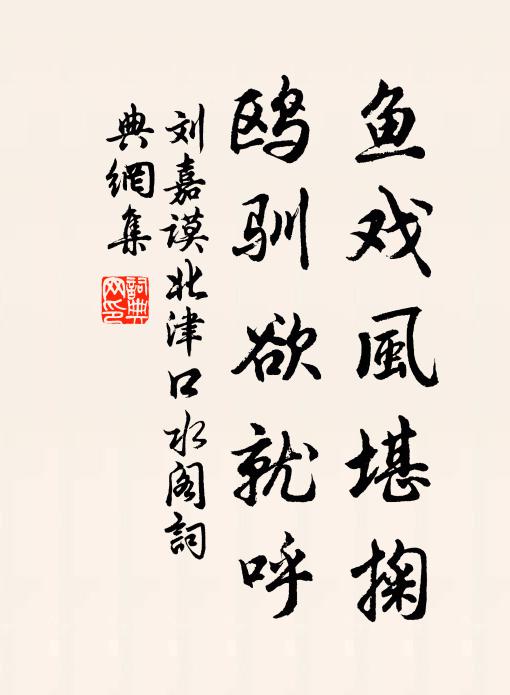 鱼戏風堪掬
鸥驯欲就呼
刘嘉谟北津口水阁詞
典網集
詞典
网印